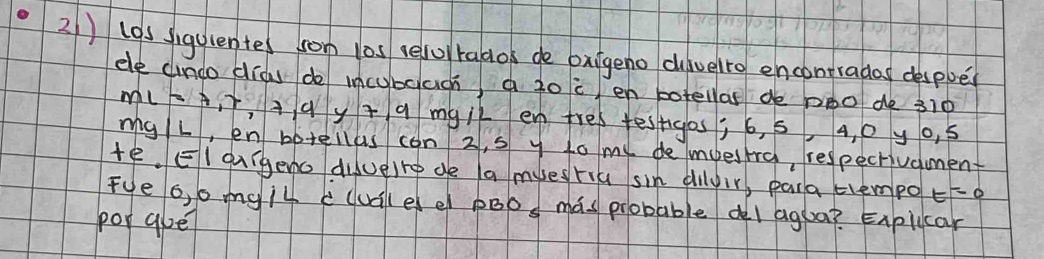 21) los siguientes son los resultados de oxígeno disuelto encontrados después
de cinco días de incubación, a 20 c, en botellas de DBO de 310
mL - 7,7, 7,9 y 7,9 mg/L en tres testigos; 6,5, 4,0 y 0,5
mg/L, en botellas con 2,5 y 10 mL de muestra, respectivamen-
te. El oxígeno disuelto de la muestra sin diluir, para tiempo t=0
Fue 0,0 mg/L ¿cuál es el DBO5 más probable del agua? Explicar
por qué